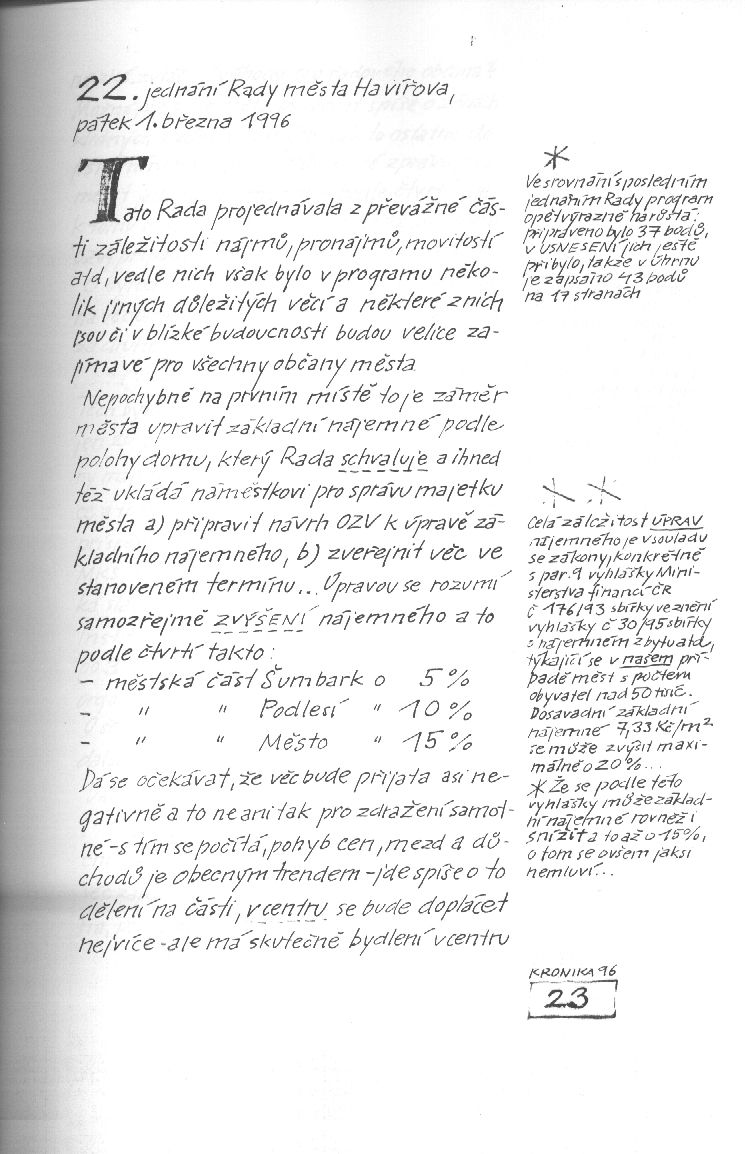 22. jednání Rady města Havířova,
pátek 1. března 1996
Tato Rada projednávala z převážné čás-
ti záležitosti nájmů, pronájmů, movitostí
atd, vedle nich však bylo v programu něko-
lik jiných důležitých věcí a některé z nich
jsou či v blízké budoucnosti budou velice za-
jímavé pro všechny občany města
Nepochybně na prvním místě to je záměr
města upravit základní nájemné podle
polohy domu, který Rada schvaluje a ihned
též ukládá náměstkovi pro správu majetku
města a) připravit návrh OZV k úpravě zá-
kladního nájemného, b) zveřejnit věc ve
stanoveném termínu... Úpravou se rozumí
samozřejmě ZVÝŠENÍ nájemného a to
podle čtvrtí takto:
- městská část Šumbark o 5%
- " " Podlesí " 10%
- " " Město " 15%
Dá se očekávat, že věc bude přijata asi ne-
gativně a to ne ani tak pro zdražení samot-
né - s tím se počítá, pohyb cen, mezd a dů-
chodů je obecným trendem - jde spíše o to
dělení na části, v centru se bude doplácet
nejvíce - ale má skutečně bydlení v centru
*
Ve srovnání s posledním
jednáním Rady program
opět výrazně narůstá:
připraveno bylo 37 bodů,
v USNESENÍ jich ještě
přibylo, takže v úhrnu
je zapsáno 43 bodů
na 17 stranách
* *
Celá záležitost ÚPRAV
nájemného je v souladu
se zákony, konkrétně
s par. 9 vyhlášky Mini-
sterstva financí ČR
č 176/93 sbírky ve znění
vyhlášky č 30/95 sbírky
o nájemném z bytu atd,
týkající se v našem pří-
padě měst s počtem
obyvatel nad 50 tisíc.
Dosavadní základní
nájemné 7,33 Kč/m²
se může zvýšit maxi-
málně o 20%...
* Že se podle této
vyhlášky může základ-
ní nájemné rovněž i
snížit a to až o 15%,
o tom se ovšem jaksi
nemluví...
KRONIKA 96
23